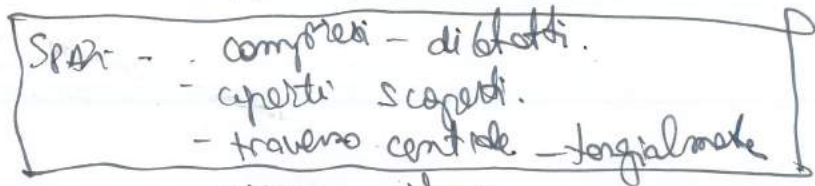 Spazi - - compresi - dilatati.
- aperti scoperti.
- traverso centrale - tangialmente